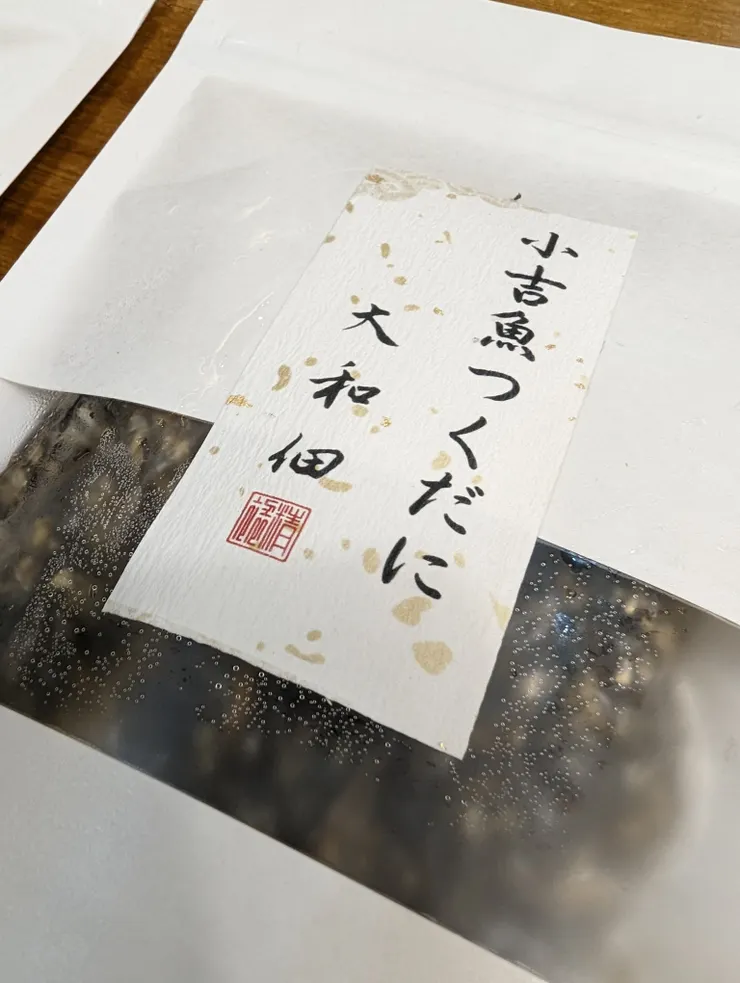 小吉魚つくだに
大和佃